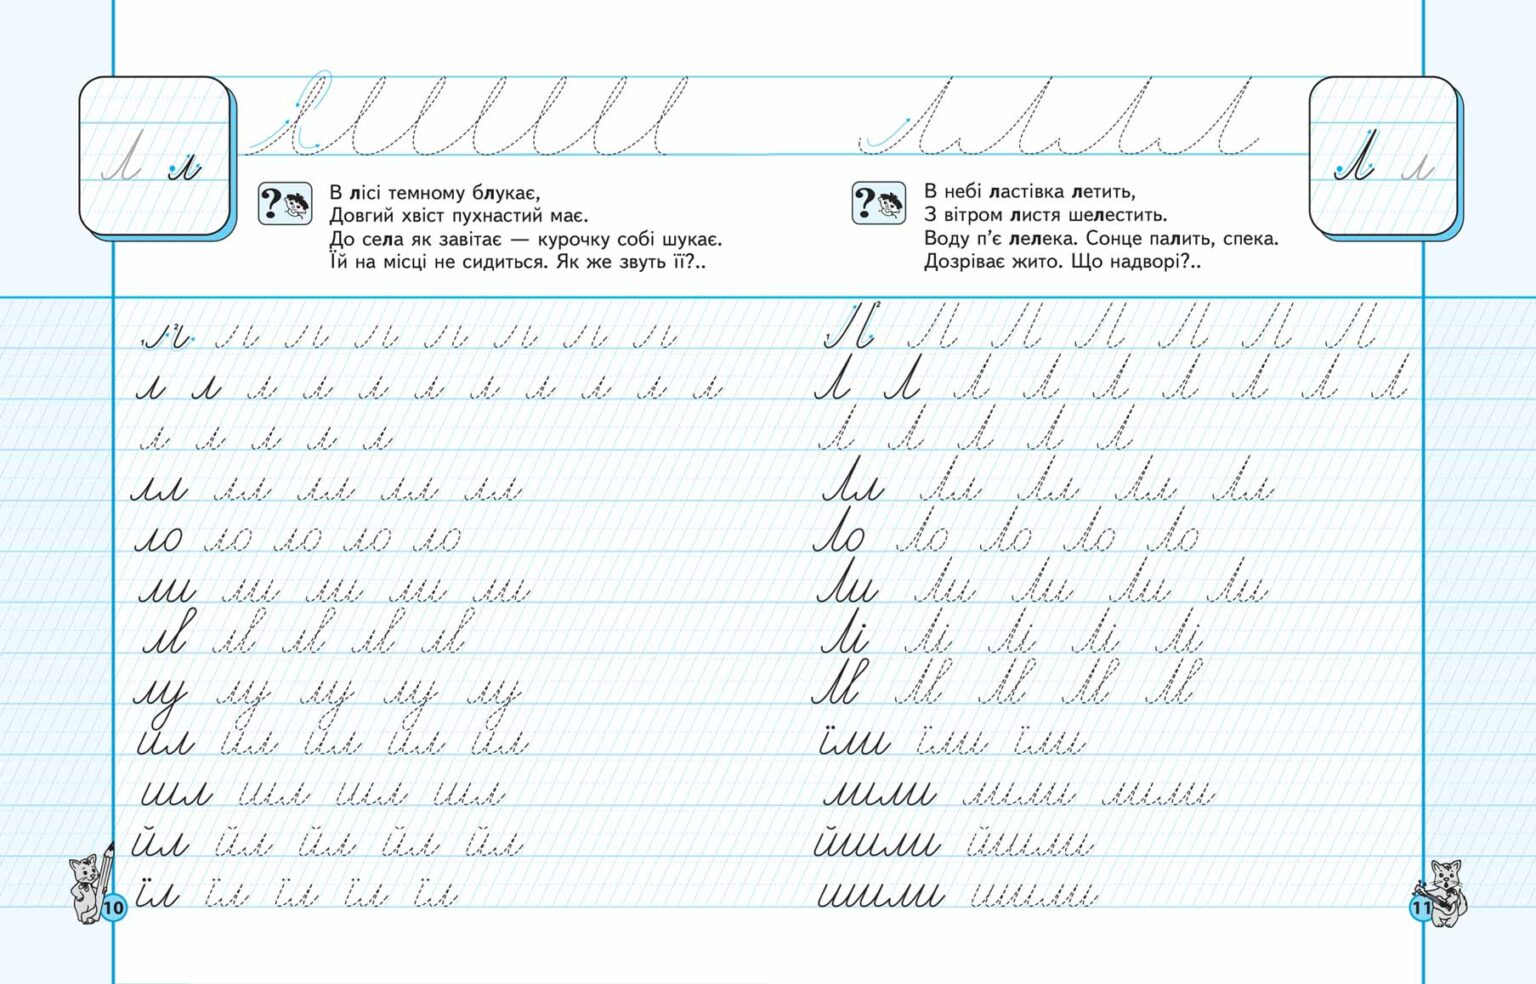 Л л
В лісі темному блукає,
Довгий хвіст пухнастий має.
До села як завітає — курочку собі шукає.
Їй на місці не сидиться. Як же звуть її?..
л л л л л л л л л л л
л л л л л
лл лл лл лл лл
ло ло ло ло ло
ли ли ли ли ли
лв лв лв лв лв
лу лу лу лу лу
ил ил ил ил ил
шл шл шл шл
йл йл йл йл йл
їл їл їл їл їл
10
Л л
В небі ластівка летить,
З вітром листя шелестить.
Воду п’є лелека. Сонце палить, спека.
Дозріває жито. Що надворі?..
Л Л Л Л Л Л Л Л Л
Л Л Л Л Л
Лл Лл Лл Лл Лл
Ло Ло Ло Ло Ло
Ли Ли Ли Ли Ли
Лі Лі Лі Лі Лі
Лв Лв Лв Лв Лв
їли їли їли
мили мили мили
йшли йшли
шили шили
11